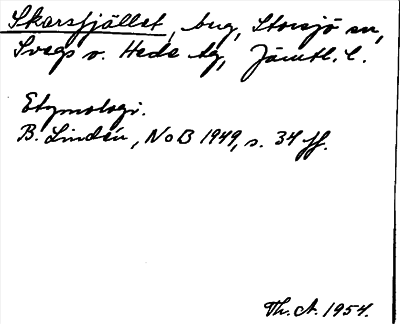 Skarsfjället, berg, Storsjö sn,
Svegs o. Heds tg, Jämtl. l.
Etymologi.
B. Lindén, NoB 1949, s. 34 ff.
Th. A. 1954.